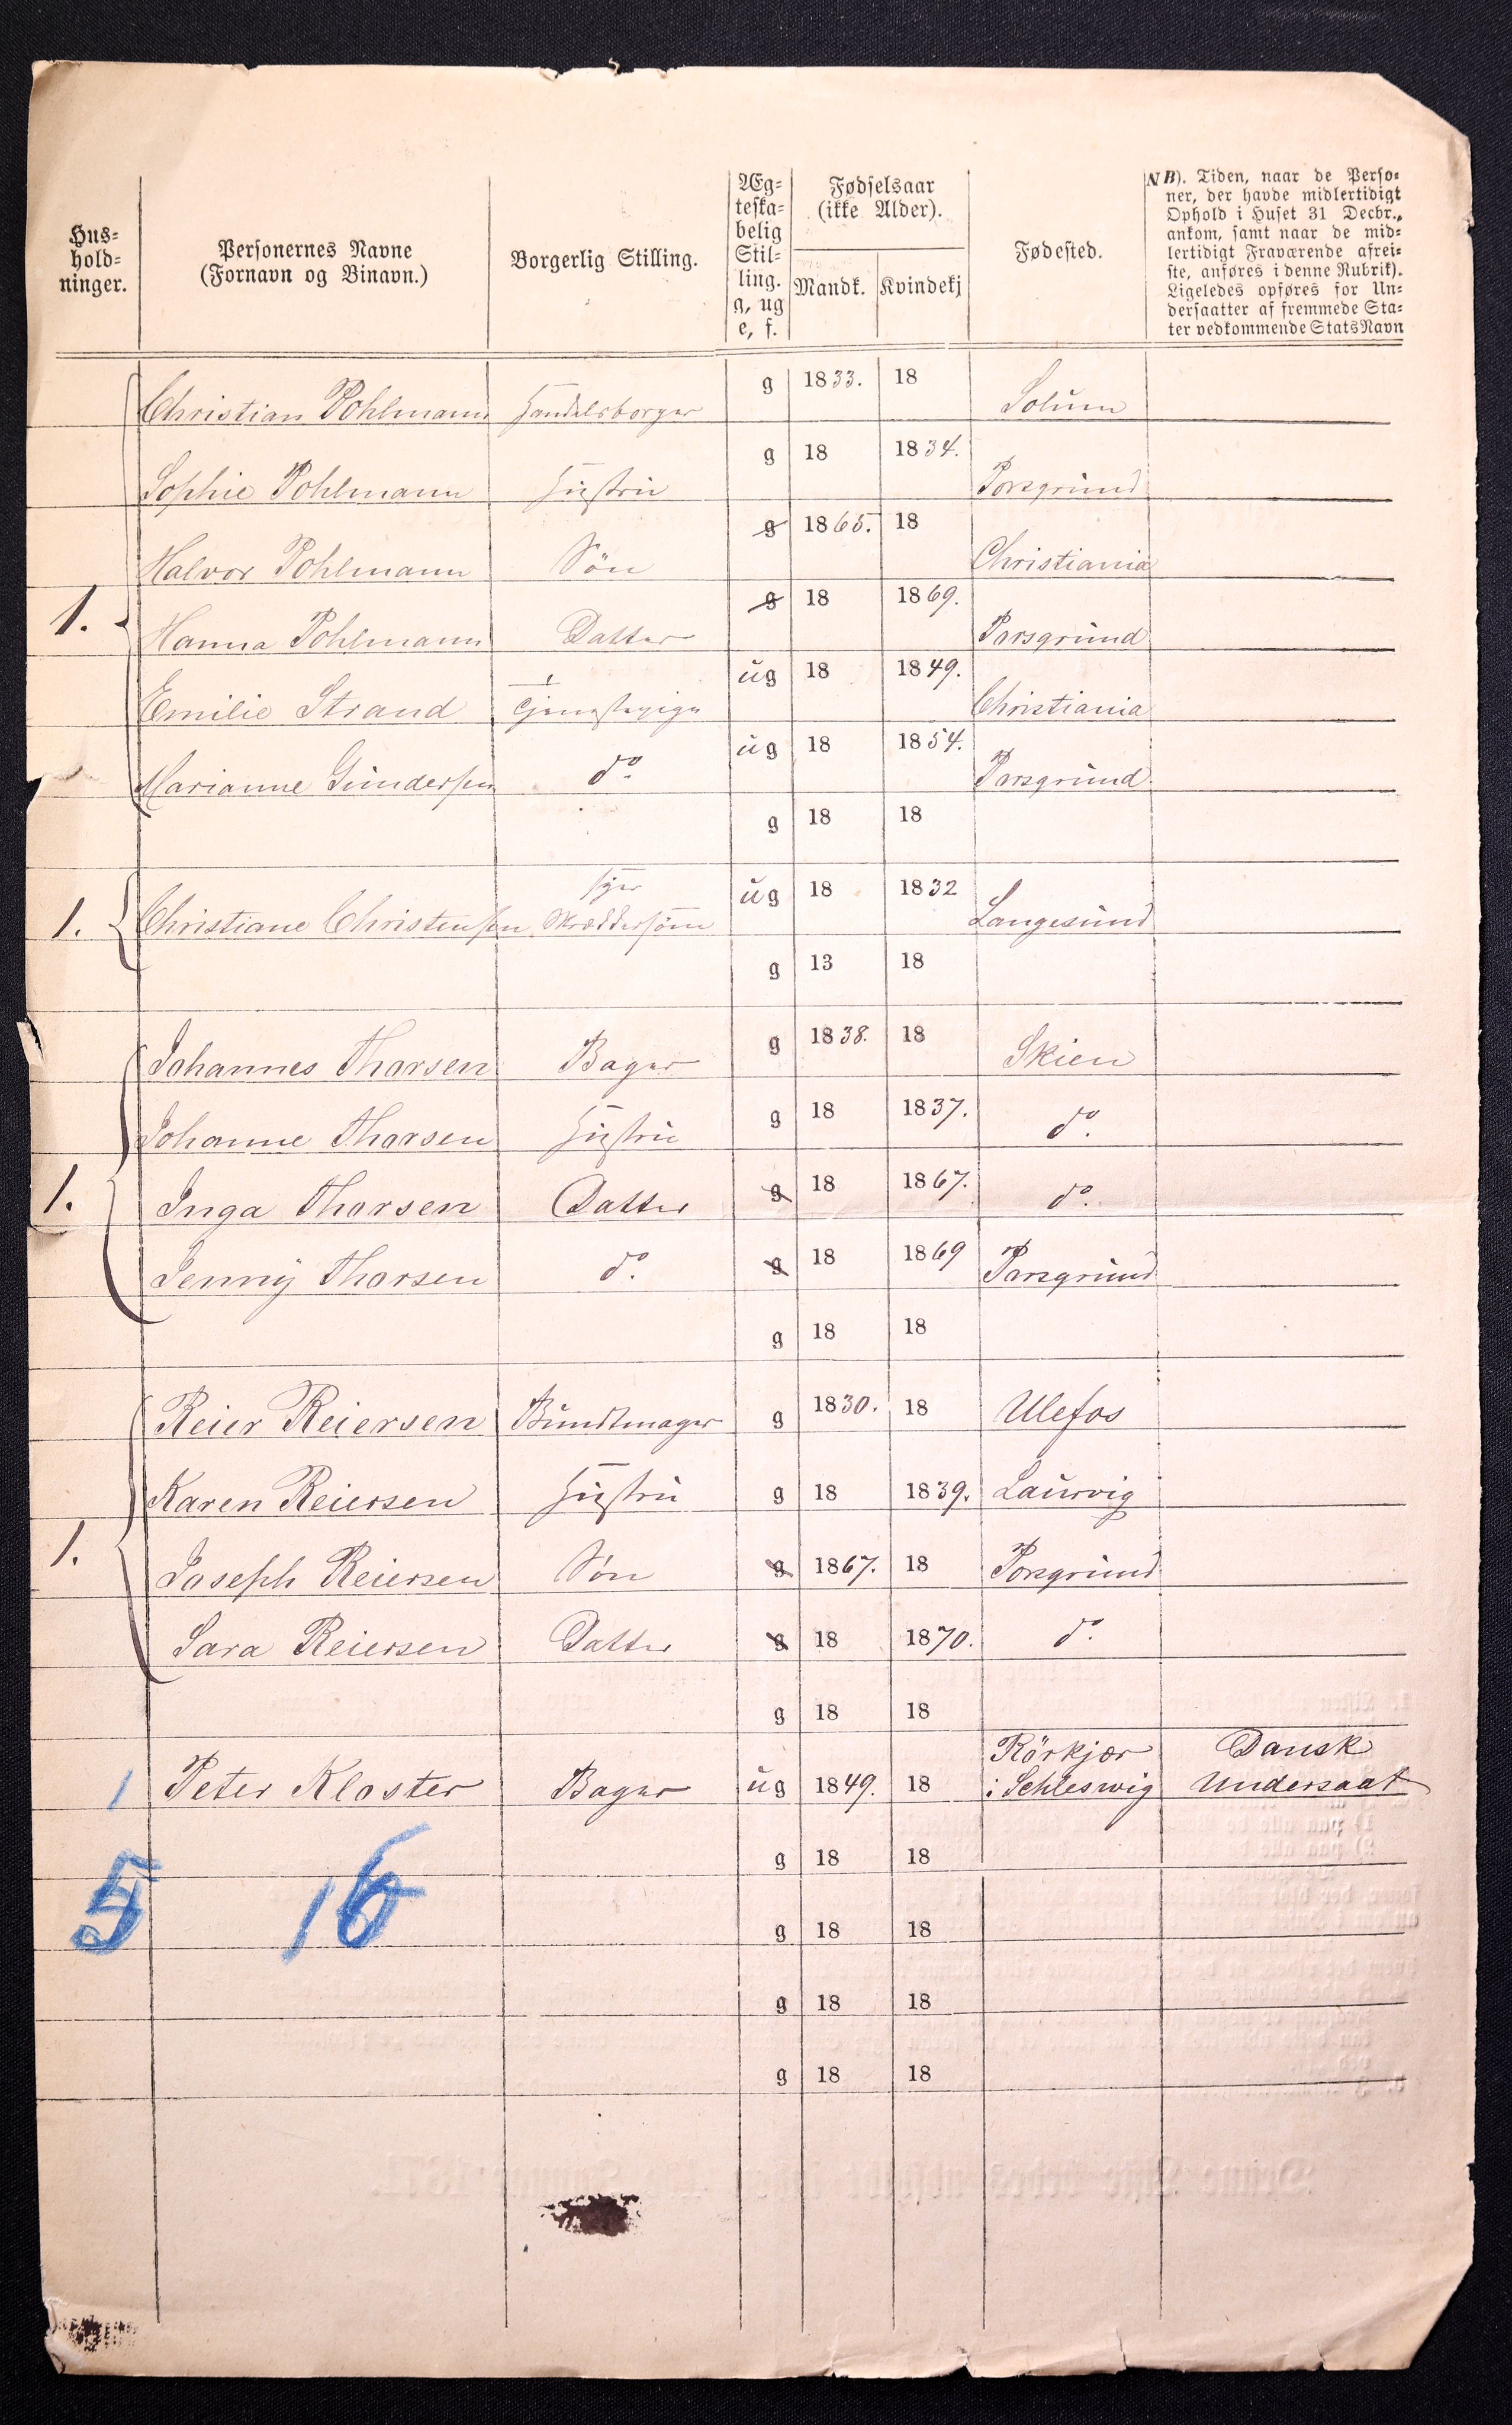 Hus-
hold-
ninger.
Personernes Navne
(Fornavn og Binavn.)
Borgerlig Stilling.
Æg-
teska-
belig
Stil-
ling.
g, ug
e, f.
Fødselsaar
(ikke Alder).
Mandk. Kvindekj
Fødested.
NB). Tiden, naar de Perso-
ner, der havde midlertidigt
Ophold i Huset 31 Decbr.,
ankom, samt naar de mid-
lertidigt Fraværende afrei-
ste, anføres i denne Rubrik).
Ligeledes opføres for Un-
dersaatter af fremmede Sta-
ter vedkommende Stats Navn
Christian Pohlmann Handelsborger g 1833. 18 Solum
Sophie Pohlmann Hustru g 18 1834. Porsgrund
Halvor Pohlmann Søn g 1865. 18 Christiania
1. Hanna Pohlmann Datter g 18 1869. Porsgrund
Emilie Strand Tjenestepige ug 18 1849. Christiania
Marianne Gundersen do ug 18 1854. Porsgrund
g 18 18
1. Christiane Christensen syer Skræddersøm ug 18 1832 Langesund
g 13 18
Johannes Thorsen Bager g 1838. 18 Skien
Johanne Thorsen Hustru g 18 1837. do.
1. Inga Thorsen Datter g 18 1867. do.
Jenny Thorsen do. g 18 1869 Porsgrund
g 18 18
Reier Reiersen Bundtmager g 1830. 18 Ulefos
Karen Reiersen Hustru g 18 1839. Laurvig
1. Joseph Reiersen Søn g 1867. 18 Porsgrund
Sara Reiersen Datter g 18 1870. do.
g 18 18
1 Peter Kloster Bager ug 1849. 18 Rörkjær i Schleswig Dansk Undersaat
g 18 18
5 16
g 18 18
g 18 18
g 18 18